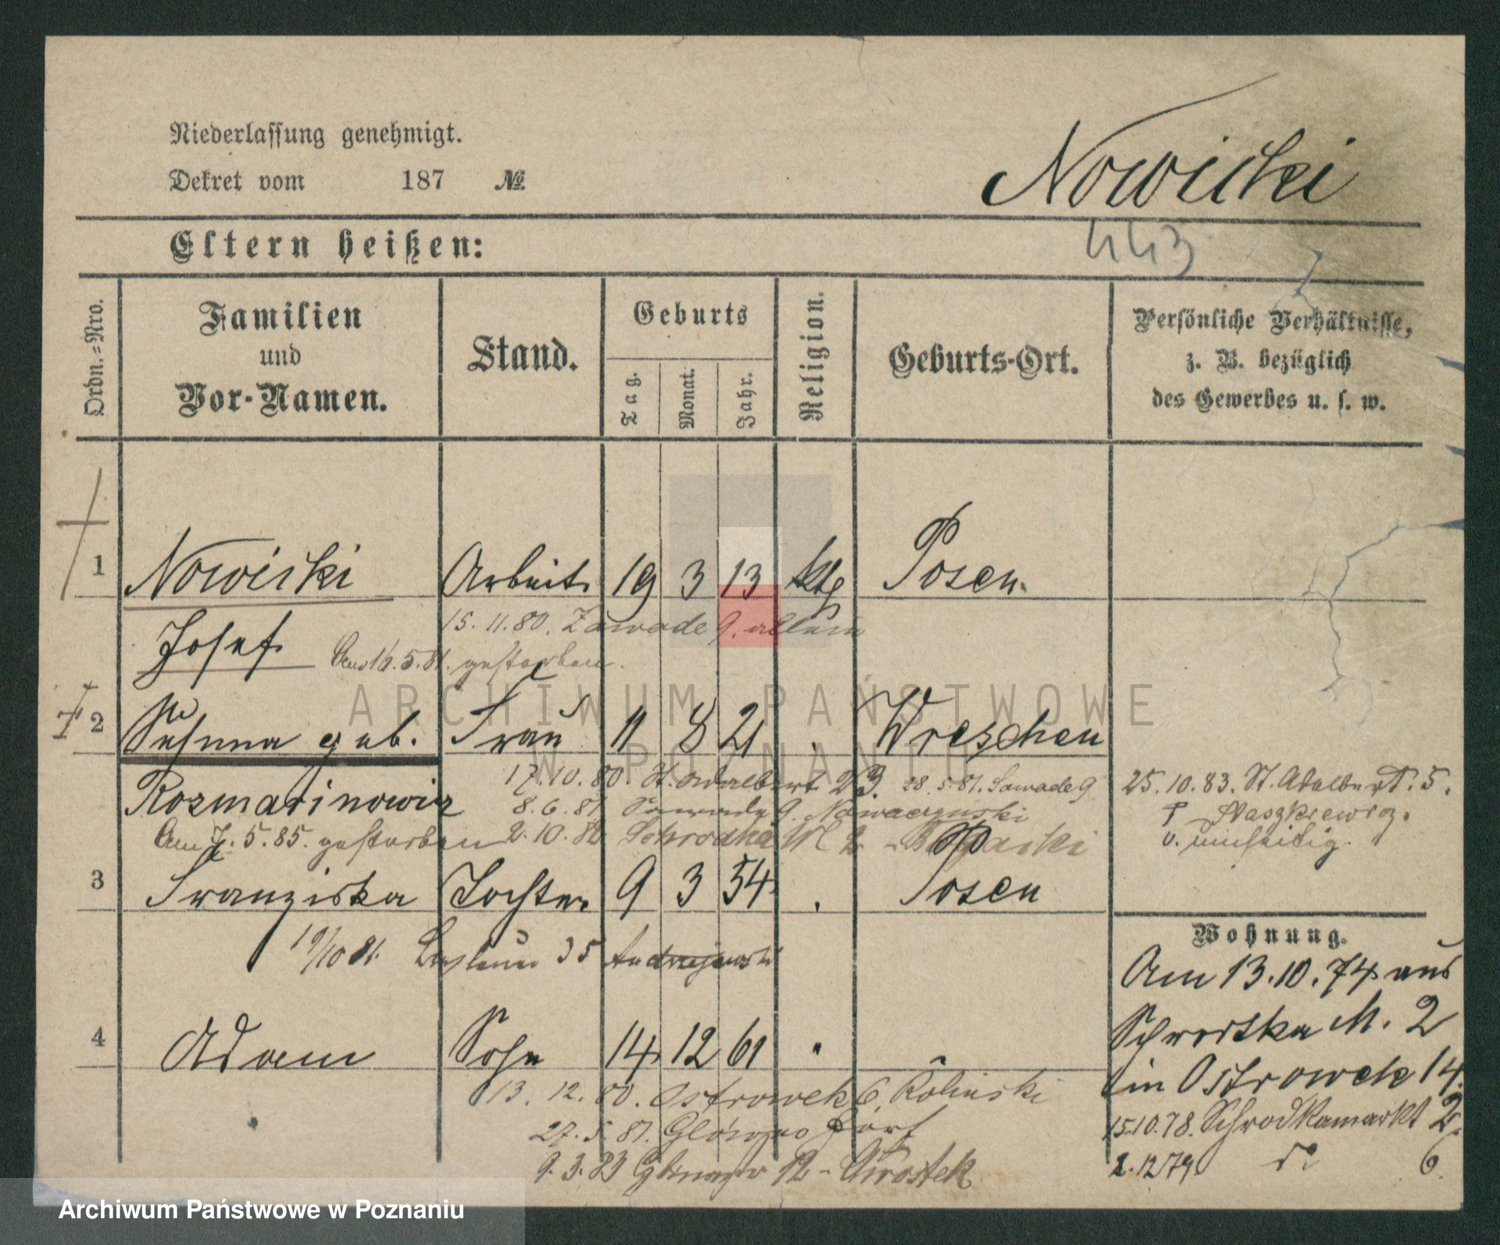 Niederlassung genehmigt.
Dekret vom 187 №
Nowicki
443
Eltern heißen:
Ordn.=Nro.
Familien
und
Vor-Namen.
Stand.
Geburts
Tag.
Monat.
Jahr.
Religion.
Geburts-Ort.
Persönliche Verhältnisse,
z. B. bezüglich
des Gewerbes u. s. w.
1 Nowicki Arbeit. 19 3 13 ktg Posen.
15. 11. 80. Zawade 9. allein
Josef. Am 16. 5. 81. gestorben.
2 geb. Frau 11 8 21 . Wreschen
17. 10. 80. St. Adalbert 23. 28. 5. 81. Sawade 9
25. 10. 83. St. Adalbert. 5.
Rozmarinowicz
8. 6. 81 Sawade 9. Nowaczynski
Am 7. 5. 85. gestorben 2. 10. 8 Schrodka M 2
3 Franziska Tochter 9 3 54 . Posen
19/10 81. 35 Andrzejewski
Wohnung.
Am 13. 10. 74 aus
Schrodka M. 2
in Ostrowek 14.
4 Adam Sohn 14 12 61 "
13. 12. 80. Ostrowek 6.
15.10.78. Schrodkamarkt 2.
27. 5. 81. Glowno Dorf
2.12 79 do 6
9. 3. 83 12 -
ARCHIWUM PAŃSTWOWE
W POZNANIU
Archiwum Państwowe w Poznaniu